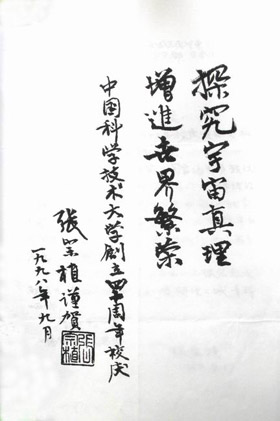 探究宇宙真理
增進世界繁荣
中国科学技术大学创立四十周年校庆
張宗植謹賀
一九九八年九月
張宗植